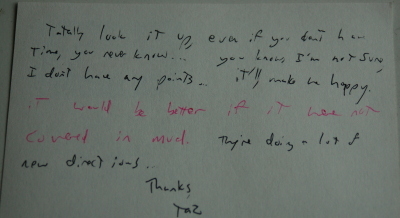 Totally look it up, even if you don't have
Time, you never know... you know, I'm not sure,
I don't have any points... it'll make me happy.
it would be better if it were not
covered in mud. They're doing a lot of
new directions...
Thanks,